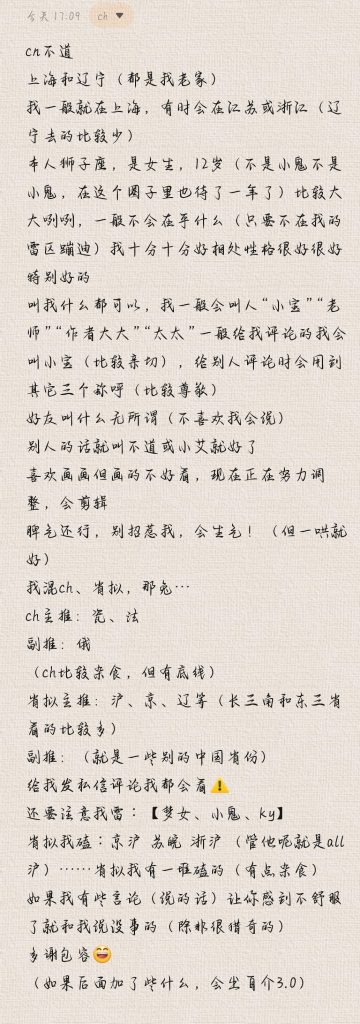 今天 17:09 ch ▼
cn不道
上海和辽宁（都是我老家）
我一般就在上海，有时会在江苏或浙江（辽
宁去的比较少）
本人狮子座，是女生，12岁（不是小鬼不是
小鬼，在这个圈子里也待了一年了）比较大
大咧咧，一般不会在乎什么（只要不在我的
雷区蹦迪）我十分十分好相处性格很好很好
特别好的
叫我什么都可以，我一般会叫人“小宝”“老
师”“作者大大”“太太”一般给我评论的我会
叫小宝（比较亲切），给别人评论时会用到
其它三个称呼（比较尊敬）
好友叫什么无所谓（不喜欢我会说）
别人的话就叫不道或小艾就好了
喜欢画画但画的不好看，现在正在努力调
整，会剪辑
脾气还行，别招惹我，会生气！（但一哄就
好）
我混ch、省拟，那兔…
ch主推：瓷、法
副推：俄
（ch比较杂食，但有底线）
省拟主推：沪、京、辽等（长三角和东三省
看的比较多）
副推：（就是一些别的中国省份）
给我发私信评论我都会看⚠️
还要注意我雷：【梦女、小鬼、ky】
省拟我磕：京沪 苏皖 浙沪 （管他呢就是all
沪）……省拟我有一堆磕的（有点杂食）
如果我有些言论（说的话）让你感到不舒服
了就和我说没事的（除非很猎奇的）
多谢包容😄
（如果后面加了些什么，会出自介3.0）